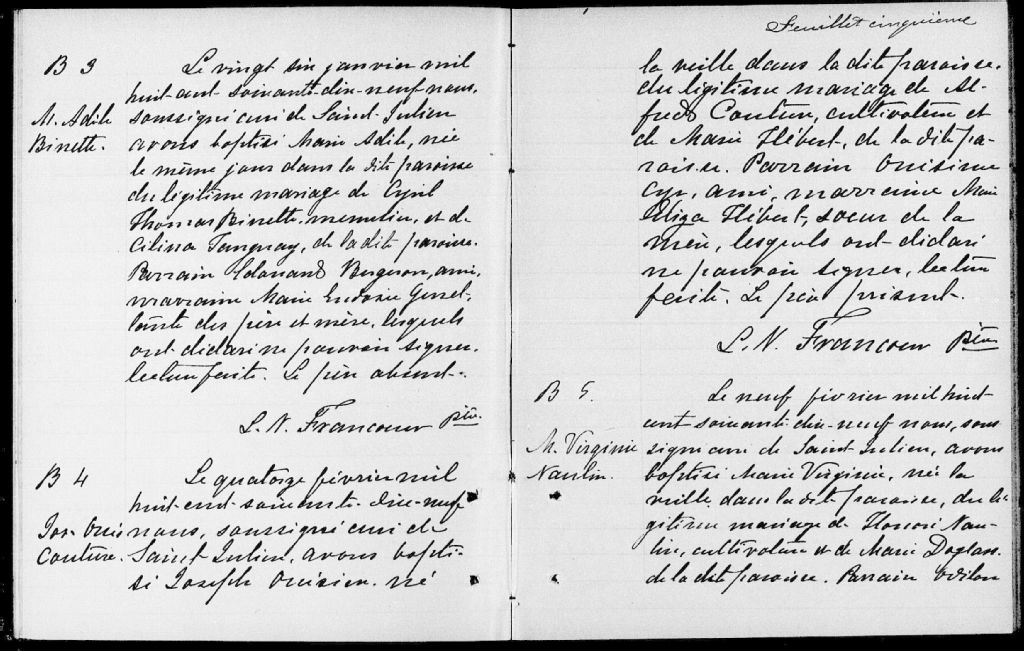 B 3
M. Adile
Binette.
Le vingt six janvier mil
huit cent soixante-dix-neuf nous,
soussigné curé de Saint Julien
avons baptisé Marie Adile, née
le même jour dans la dite paroisse
du légitime mariage de Cyril
Thomas Binette, menuisier, et de
Célina Tanguay, de la dite paroisse.
Parrain Edouard Bergeron, ami,
marraine Marie
tante des père et mère, lesquels
ont déclaré ne pouvoir signer.
lecture faite. Le père absent.
L. N. Francoeur Ptre.
B 4
Jos. Onés.
Couture.
Le quatorze février mil
huit cent soixante-dix-neuf
nous, soussigné curé de
Saint Julien, avons bapti-
sé Joseph Onésime né
Feuillet cinquième
la veille dans la dite paroisse,
du légitime mariage de Al-
fred Couture, cultivateur et
de Marie Hébert, de la dite pa-
roisse. Parrain Onésime
Cyr, ami, marraine Marie
Eliza Hébert, soeur de la
mère, lesquels ont déclaré
ne pouvoir signer, lecture
faite. Le père présent.
L. N. Francoeur Ptre
B 5.
M. Virginie
Naulin.
Le neuf février mil huit
cent soixante dix-neuf nous, sous
signé curé de Saint Julien, avons
baptisé Marie Virginie, née la
veille dans la dite paroisse, du lé-
gitime mariage de Honoré Nau-
lin, cultivateur et de Marie
de la dite paroisse. Parrain Odilon